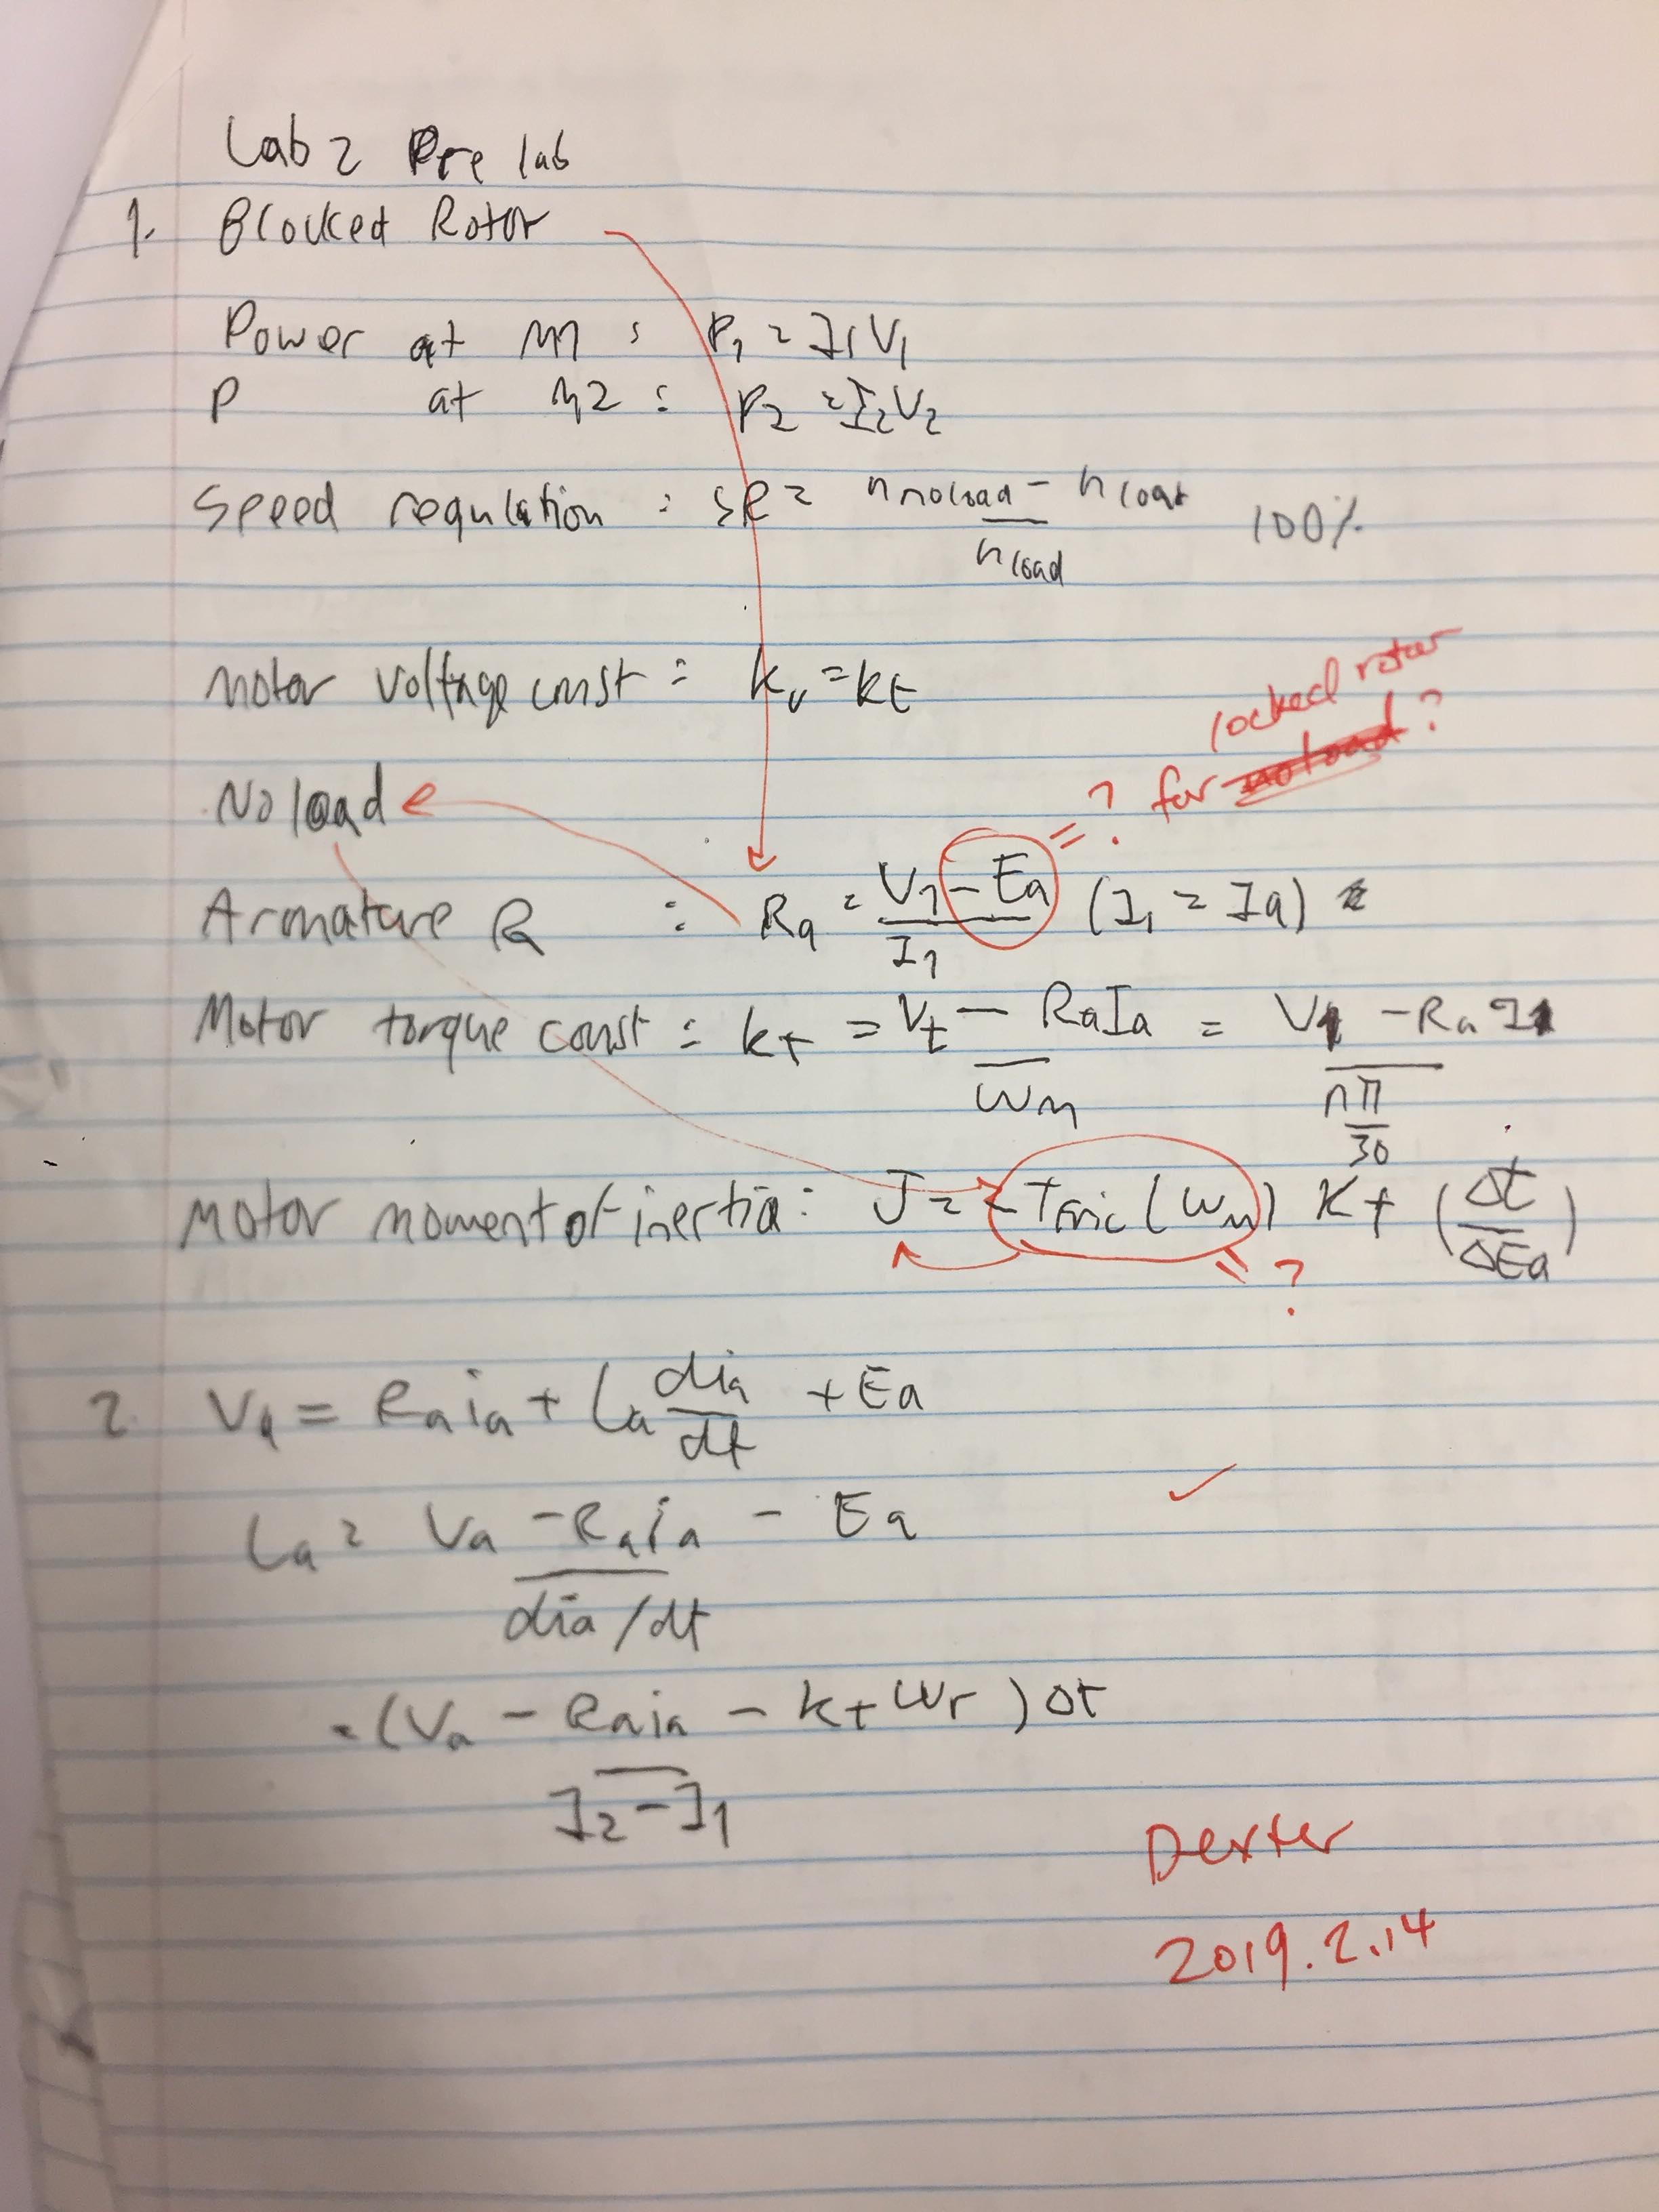 Lab 2 Pre lab
1. Blocked Rotor
Power at M1 : P1 = I1V1
P at M2 : P2 = I2V2
Speed regulation : SR = (n noload - n load) / n load 100%
locked rotor
Motor voltage const : kv = kt
= ? for noload ?
No load
Armature R : Ra = (V1 - Ea) / I1 (I1 = Ia)
Motor torque const : kt = (Vt - RaIa) / ωm = (V1 - RaI1) / (nπ/30)
Motor moment of inertia : J = -Tfric (ωm) Kt (Δt/ΔEa)
= ?
2. Va = Ra ia + La dia/dt + Ea
La = (Va - Ra ia - Ea) / (dia/dt)
= (Va - Raia - kt ωr) Δt / (I2 - I1)
Dexter
2019.2.14